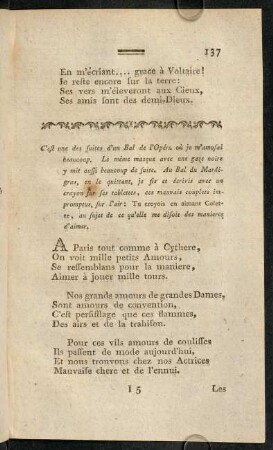 137
En m'écriant.... grace à Voltaire!
Je reste encore sur la terre:
Ses vers m'éleveront aux Cieux,
Ses amis sont des demi-Dieux.
C'est une des suites d'un Bal de l'Opéra où je m'amusai
beaucoup. Le même masque avec une gaze noire
y mit aussi beaucoup de suite. Au Bal du Mardi-
gras, en le quittant, je fis et écrivis avec un
crayon sur ses tablettes, ces mauvais couplets im-
promptus, sur l'air: Tu croyois en aimant Colet-
te, au sujet de ce qu'elle me disoit des manieres
d'aimer.
A Paris tout comme à Cythere,
On voit mille petits Amours,
Se ressemblans pour la maniere,
Aimer à jouer mille tours.
Nos grands amours de grandes Dames,
Sont amours de convention,
C'est persifflage que ces flammes,
Des airs et de la trahison.
Pour ces vils amours de coulisses
Ils passent de mode aujourd'hui,
Et nous trouvons chez nos Actrices
Mauvaise chere et de l'ennui.
I 5 Les